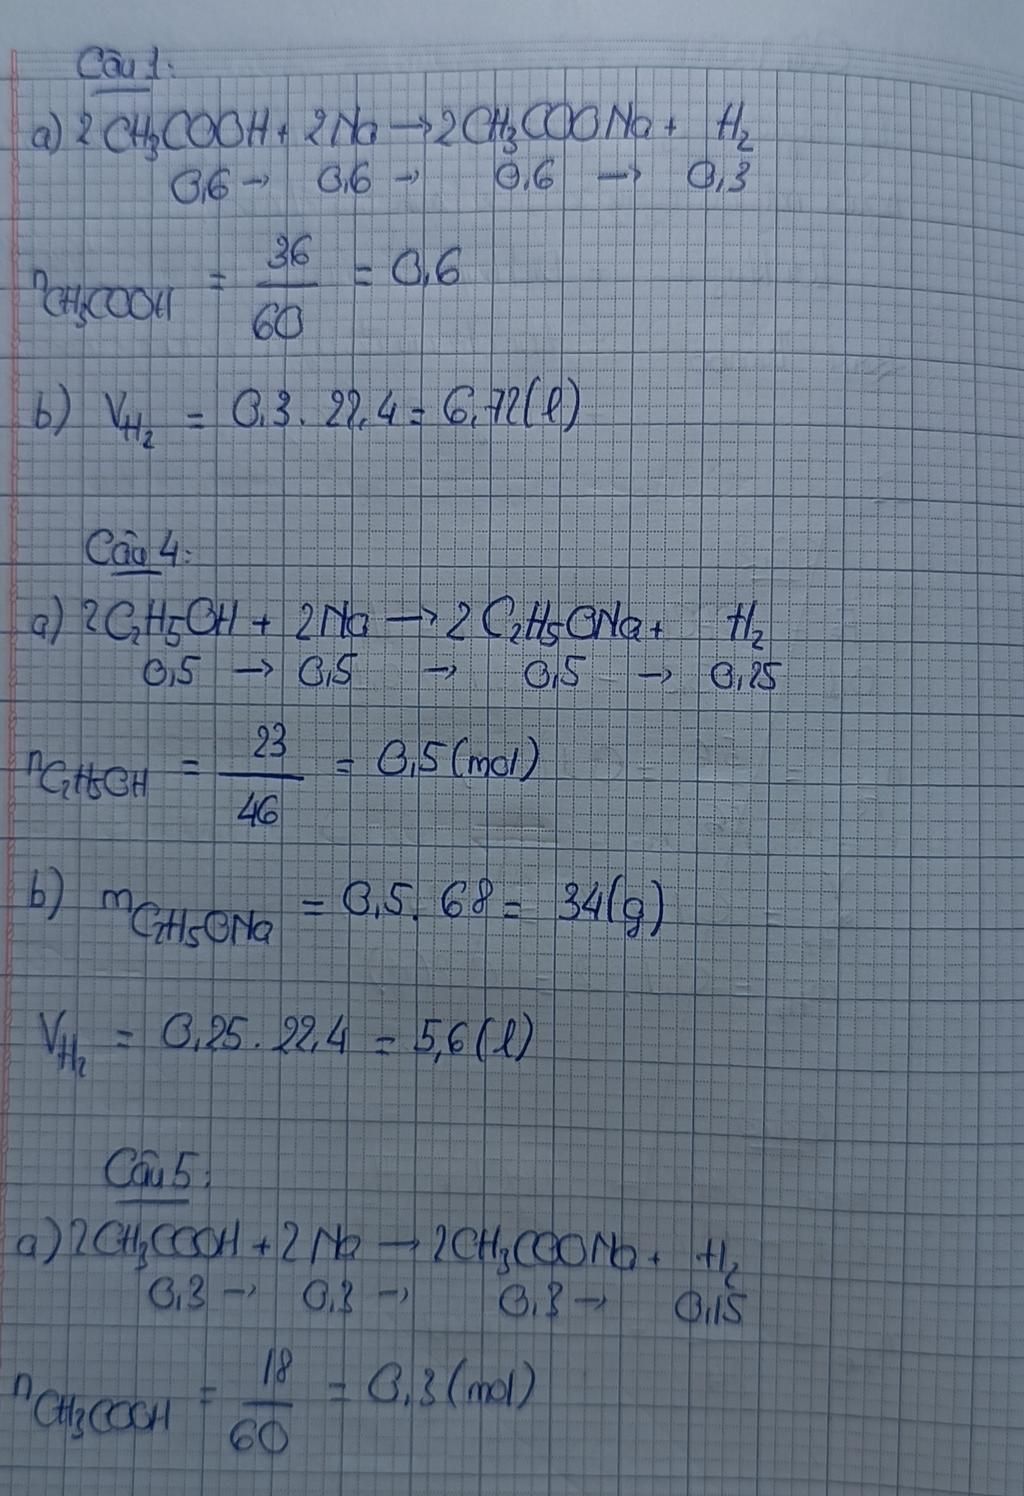 Câu 1:
a) 2CH3COOH + 2Na → 2CH3COONa + H2
0,6 → 0,6 → 0,6 → 0,3
nCH3COOH = 36/60 = 0,6
b) VH2 = 0,3 . 22,4 = 6,72(l)
Câu 4:
a) 2C2H5OH + 2Na → 2C2H5ONa + H2
0,5 → 0,5 → 0,5 → 0,25
nC2H5OH = 23/46 = 0,5 (mol)
b) mC2H5ONa = 0,5 . 68 = 34(g)
VH2 = 0,25 . 22,4 = 5,6 (l)
Câu 5:
a) 2CH3COOH + 2Na → 2CH3COONa + H2
0,3 → 0,3 → 0,3 → 0,15
nCH3COOH = 18/60 = 0,3 (mol)